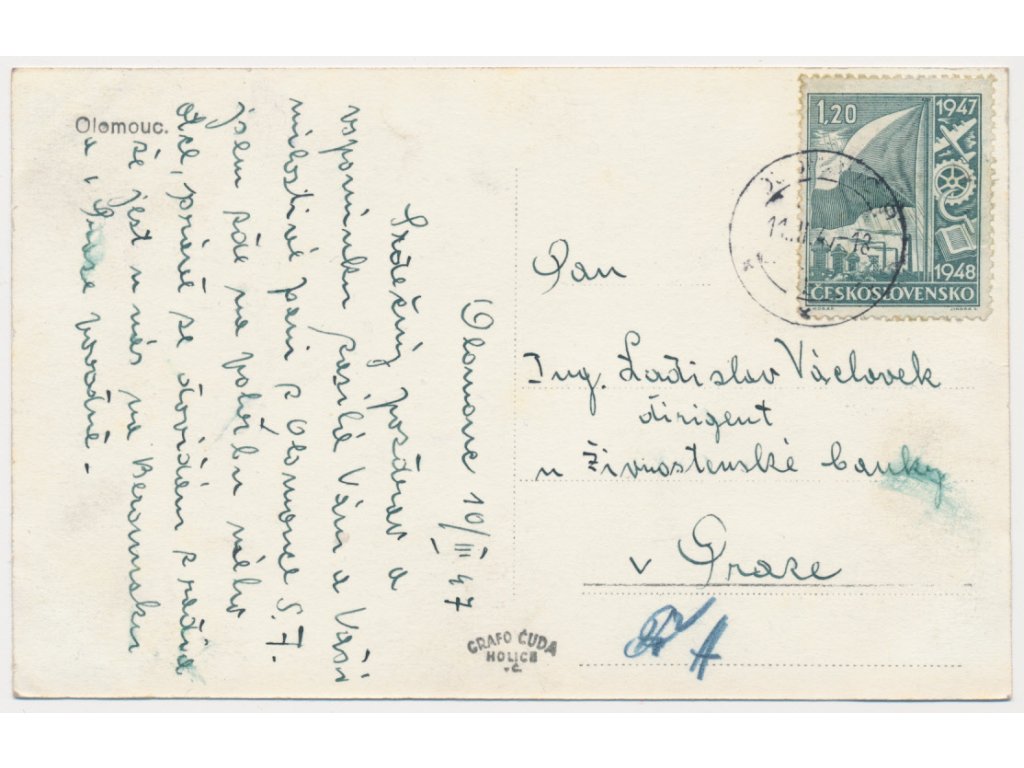 Olomouc.
Olomouc 10/III 47
Srdečný pozdrav a
vzpomínku posílá Vám a Vaší
milostivé paní z Olomouce S. J.
jsem zde na pohřbu mého
otce, právě se dovídám z rádia
že jest u nás na Berounsku
a v Praze povodně.
1,20
1947
1948
ČESKOSLOVENSKO
Pan
Ing. Ladislav Václavek
dirigent
u Živnostenské banky
v Praze
GRAFO ČUDA
HOLICE
v.Č.